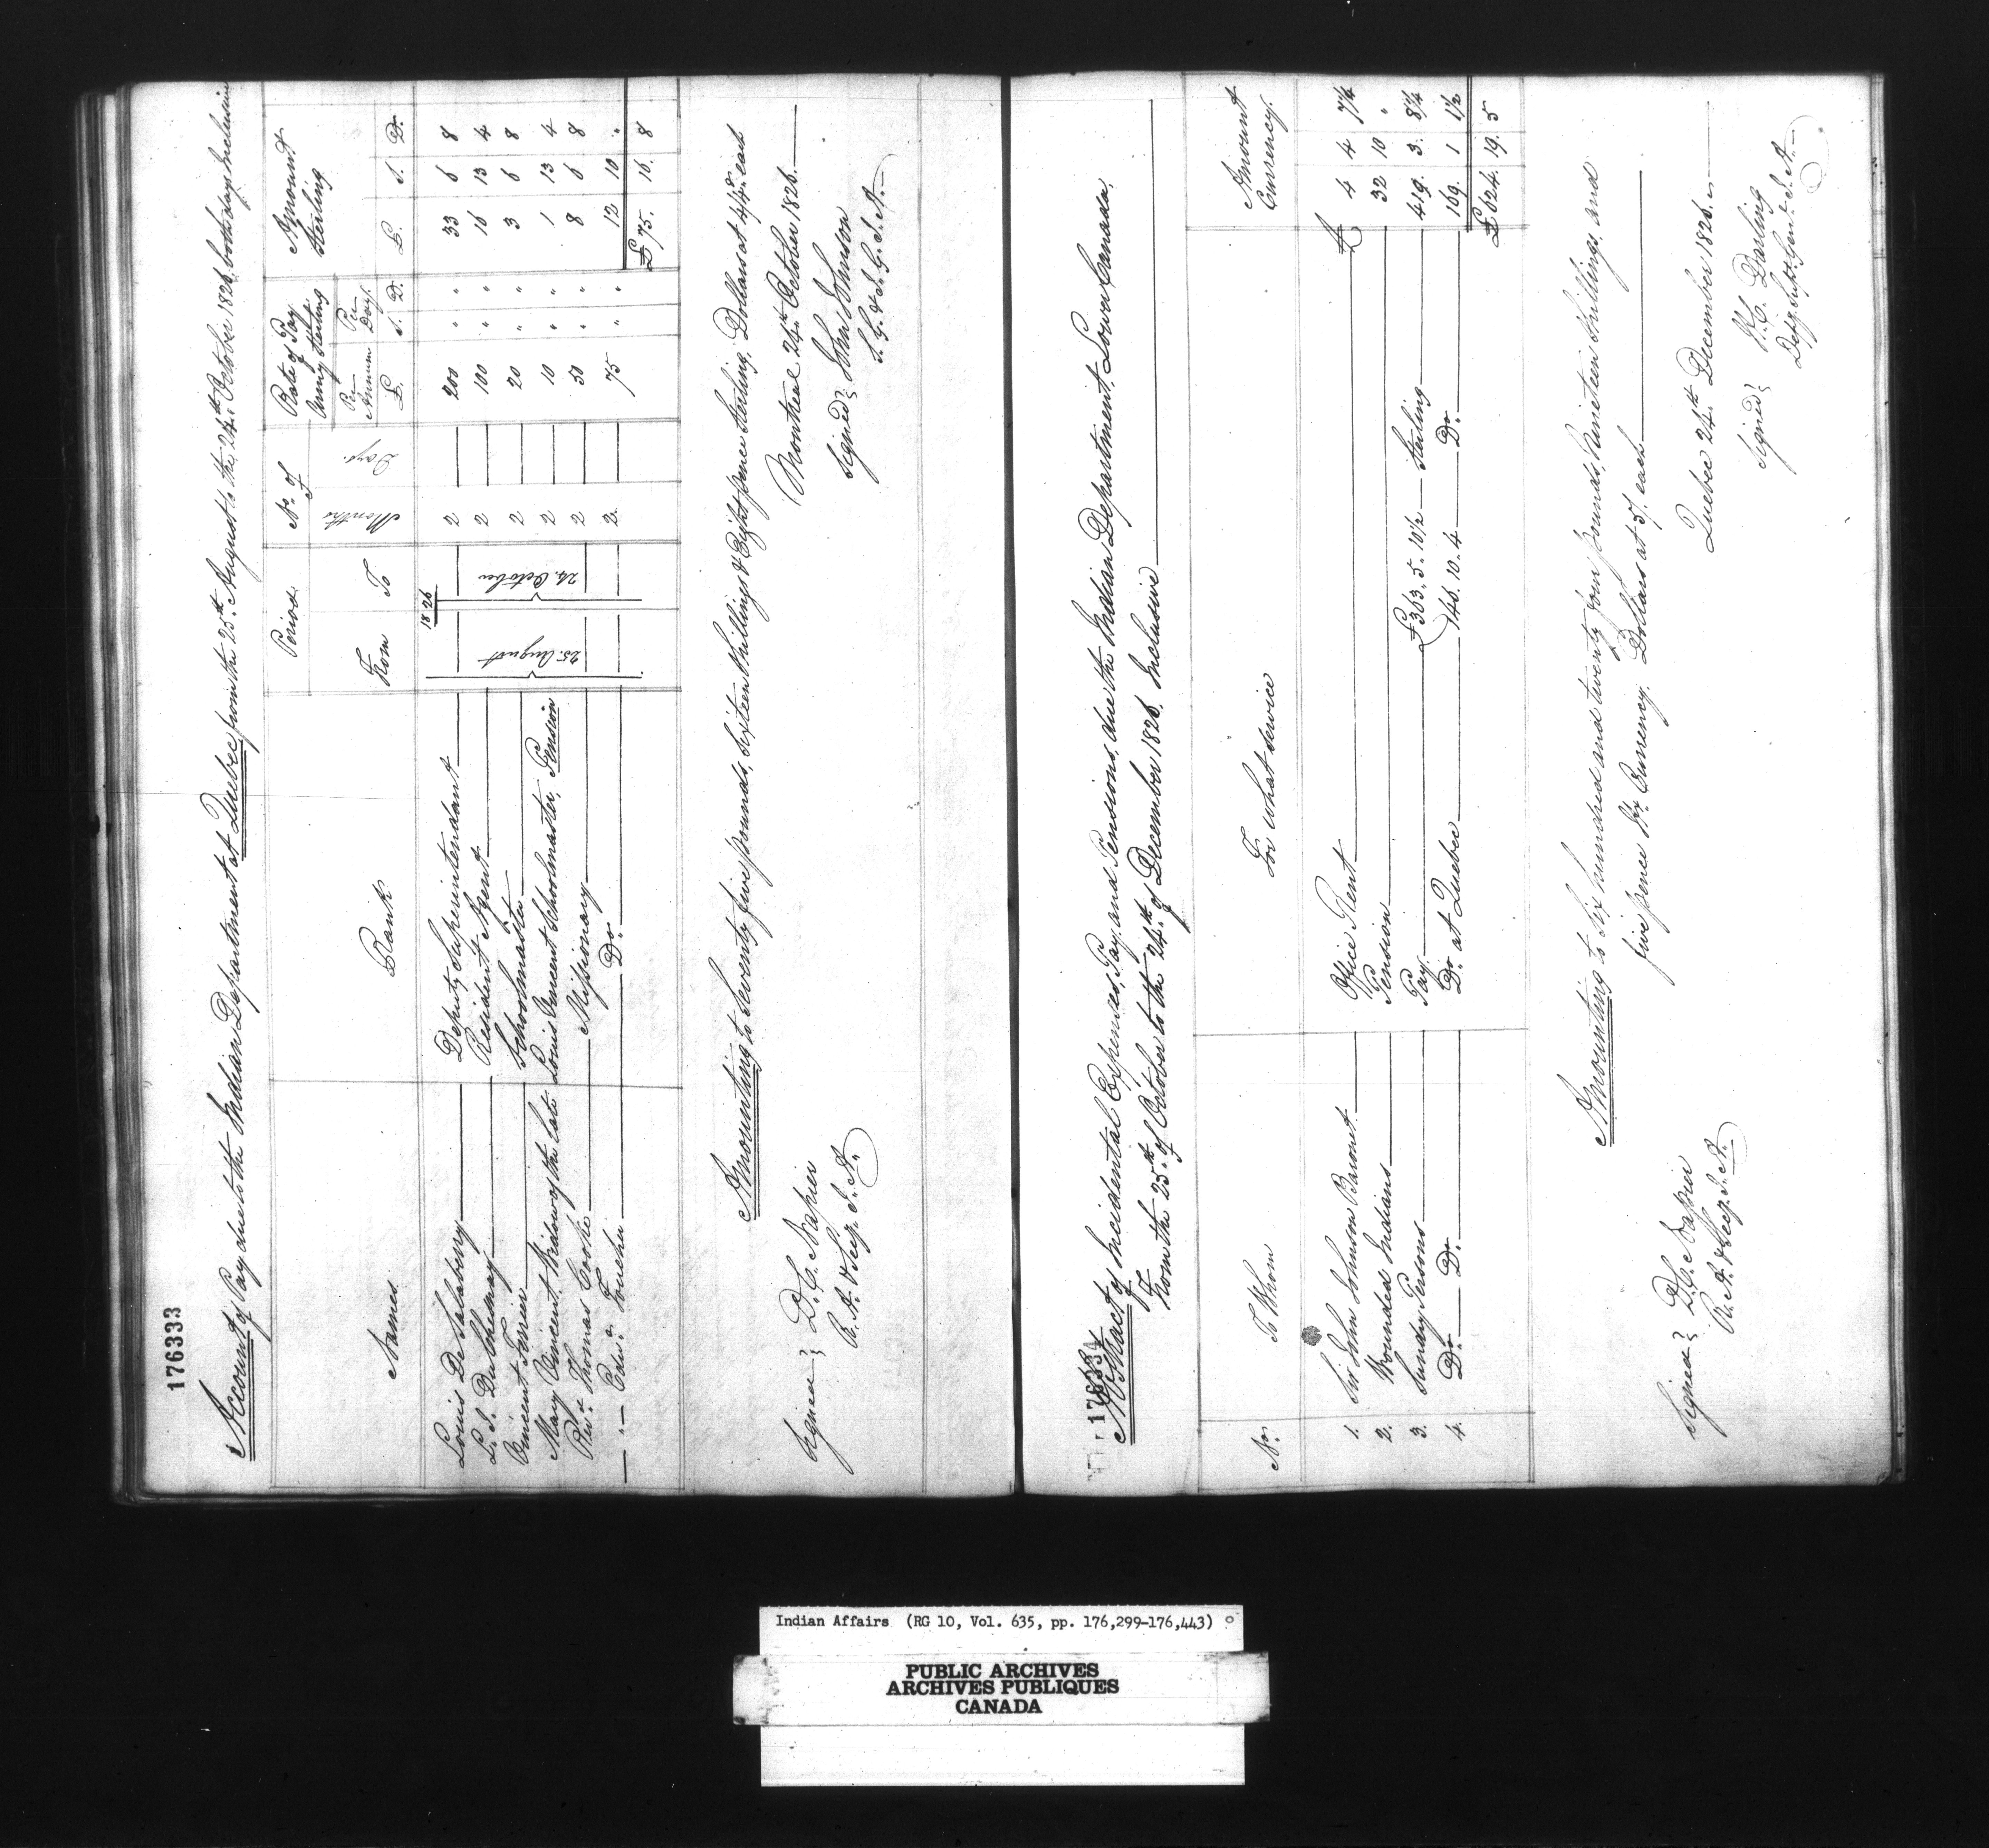 176333
Account of Pay due to the Indian Department at Quebec, from the 25th August to the 24th October 1826, both days Inclusive
Names Rank Period No. of Rate of Pay Army Sterling Amount Sterling
From To Months Days Per Annum Per Day
£ S. D. £. S. D.
1826
Louis De Salaberry Deputy Superintendant 2 200 " " 33 6 8
L. J. Duchesnay Resident Agent 2 100 " " 16 13 4
Vincent Ferrier Schoolmaster 25. August 24. October 2 20 " " 3 6 8
Mary Vincent Widow of the late Louis Vincent Schoolmaster, Pension 2 10 " " 1 13 4
Revd. Thomas Cooke Missionary 2 50 " " 8 6 8
— " — Edwd. Foucher Do. 2 75 " " 12 10 "
£ 75. 16. 8
Amounting to Seventy five pounds, Sixteen Shillings & Eight pence Sterling, Dollars at 4/4d. each
Montreal 24th October 1826.
Signed } D. C. Napier
R. A. & Secy. I. A.
Signed } John Johnson
S. G. & I. G. I. A.
176334
Abstract of Incidental Expences, Pay, and Pensions, due the Indian Department, Lower Canada,
From the 25th of October to the 24th of December 1826. Inclusive
No. To Whom For what service Amount Currency.
1. Sir John Johnson Baronet Office Rent £ 4 4 7¼
2. Wounded Indians Pension 32 10 "
3. Sundry Persons Pay £363. 5. 10½ Sterling 419. 3. 8¼
4. Do. Do. Do. at Quebec 146. 10. 4 Do. 169. 1 1½
£ 624. 19. 5
Amounting to Six hundred and twenty four pounds, Nineteen Shillings, and
five pence Hx. Currency. Dollars at 5/. each
Quebec 24th December 1826.
Signed } D. C. Napier
R. A. & Secy. I. A.
Signed } H. C. Darling
Depy. Supt. Genl. I. A.
Indian Affairs (RG 10, Vol. 635, pp. 176,299-176,443)
PUBLIC ARCHIVES
ARCHIVES PUBLIQUES
CANADA